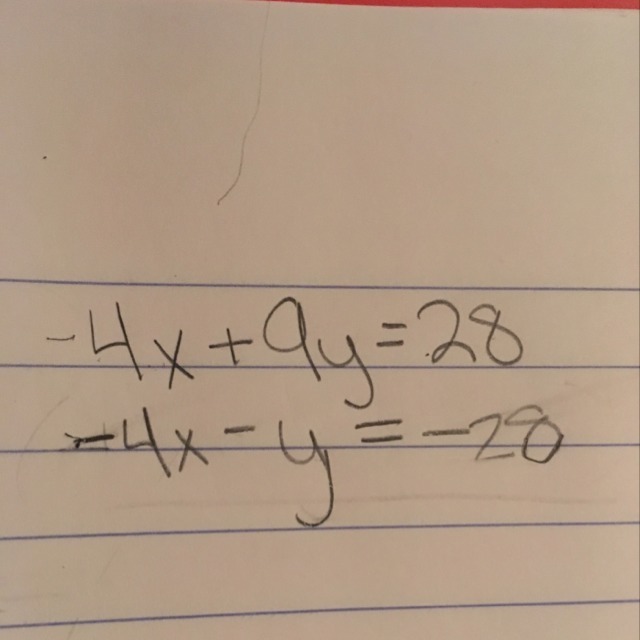 -4x+9y=28
-4x-y=-28